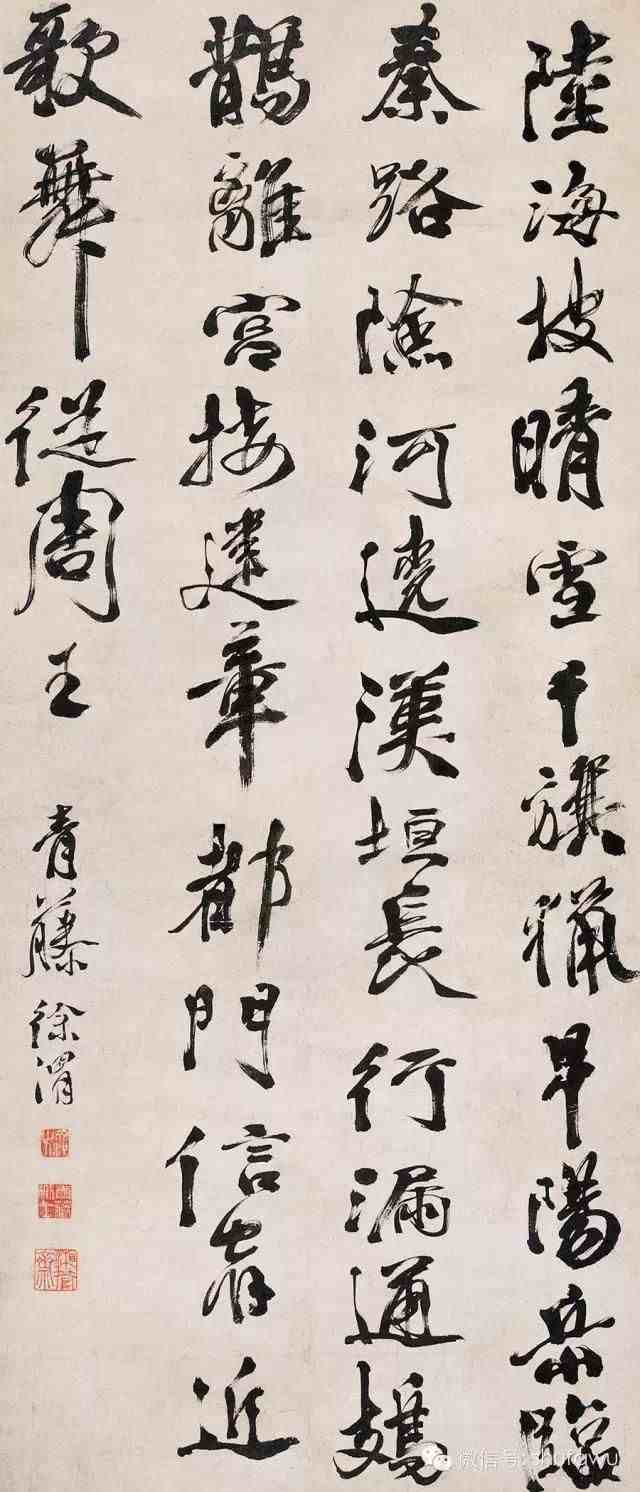 陸海披晴雪千旗獵早陽岳臨
秦路險河遶漢垣長行漏通鳷
鵲離宮接建章都門信宿近
歌舞從周王
青藤徐渭
微信号: shufawu